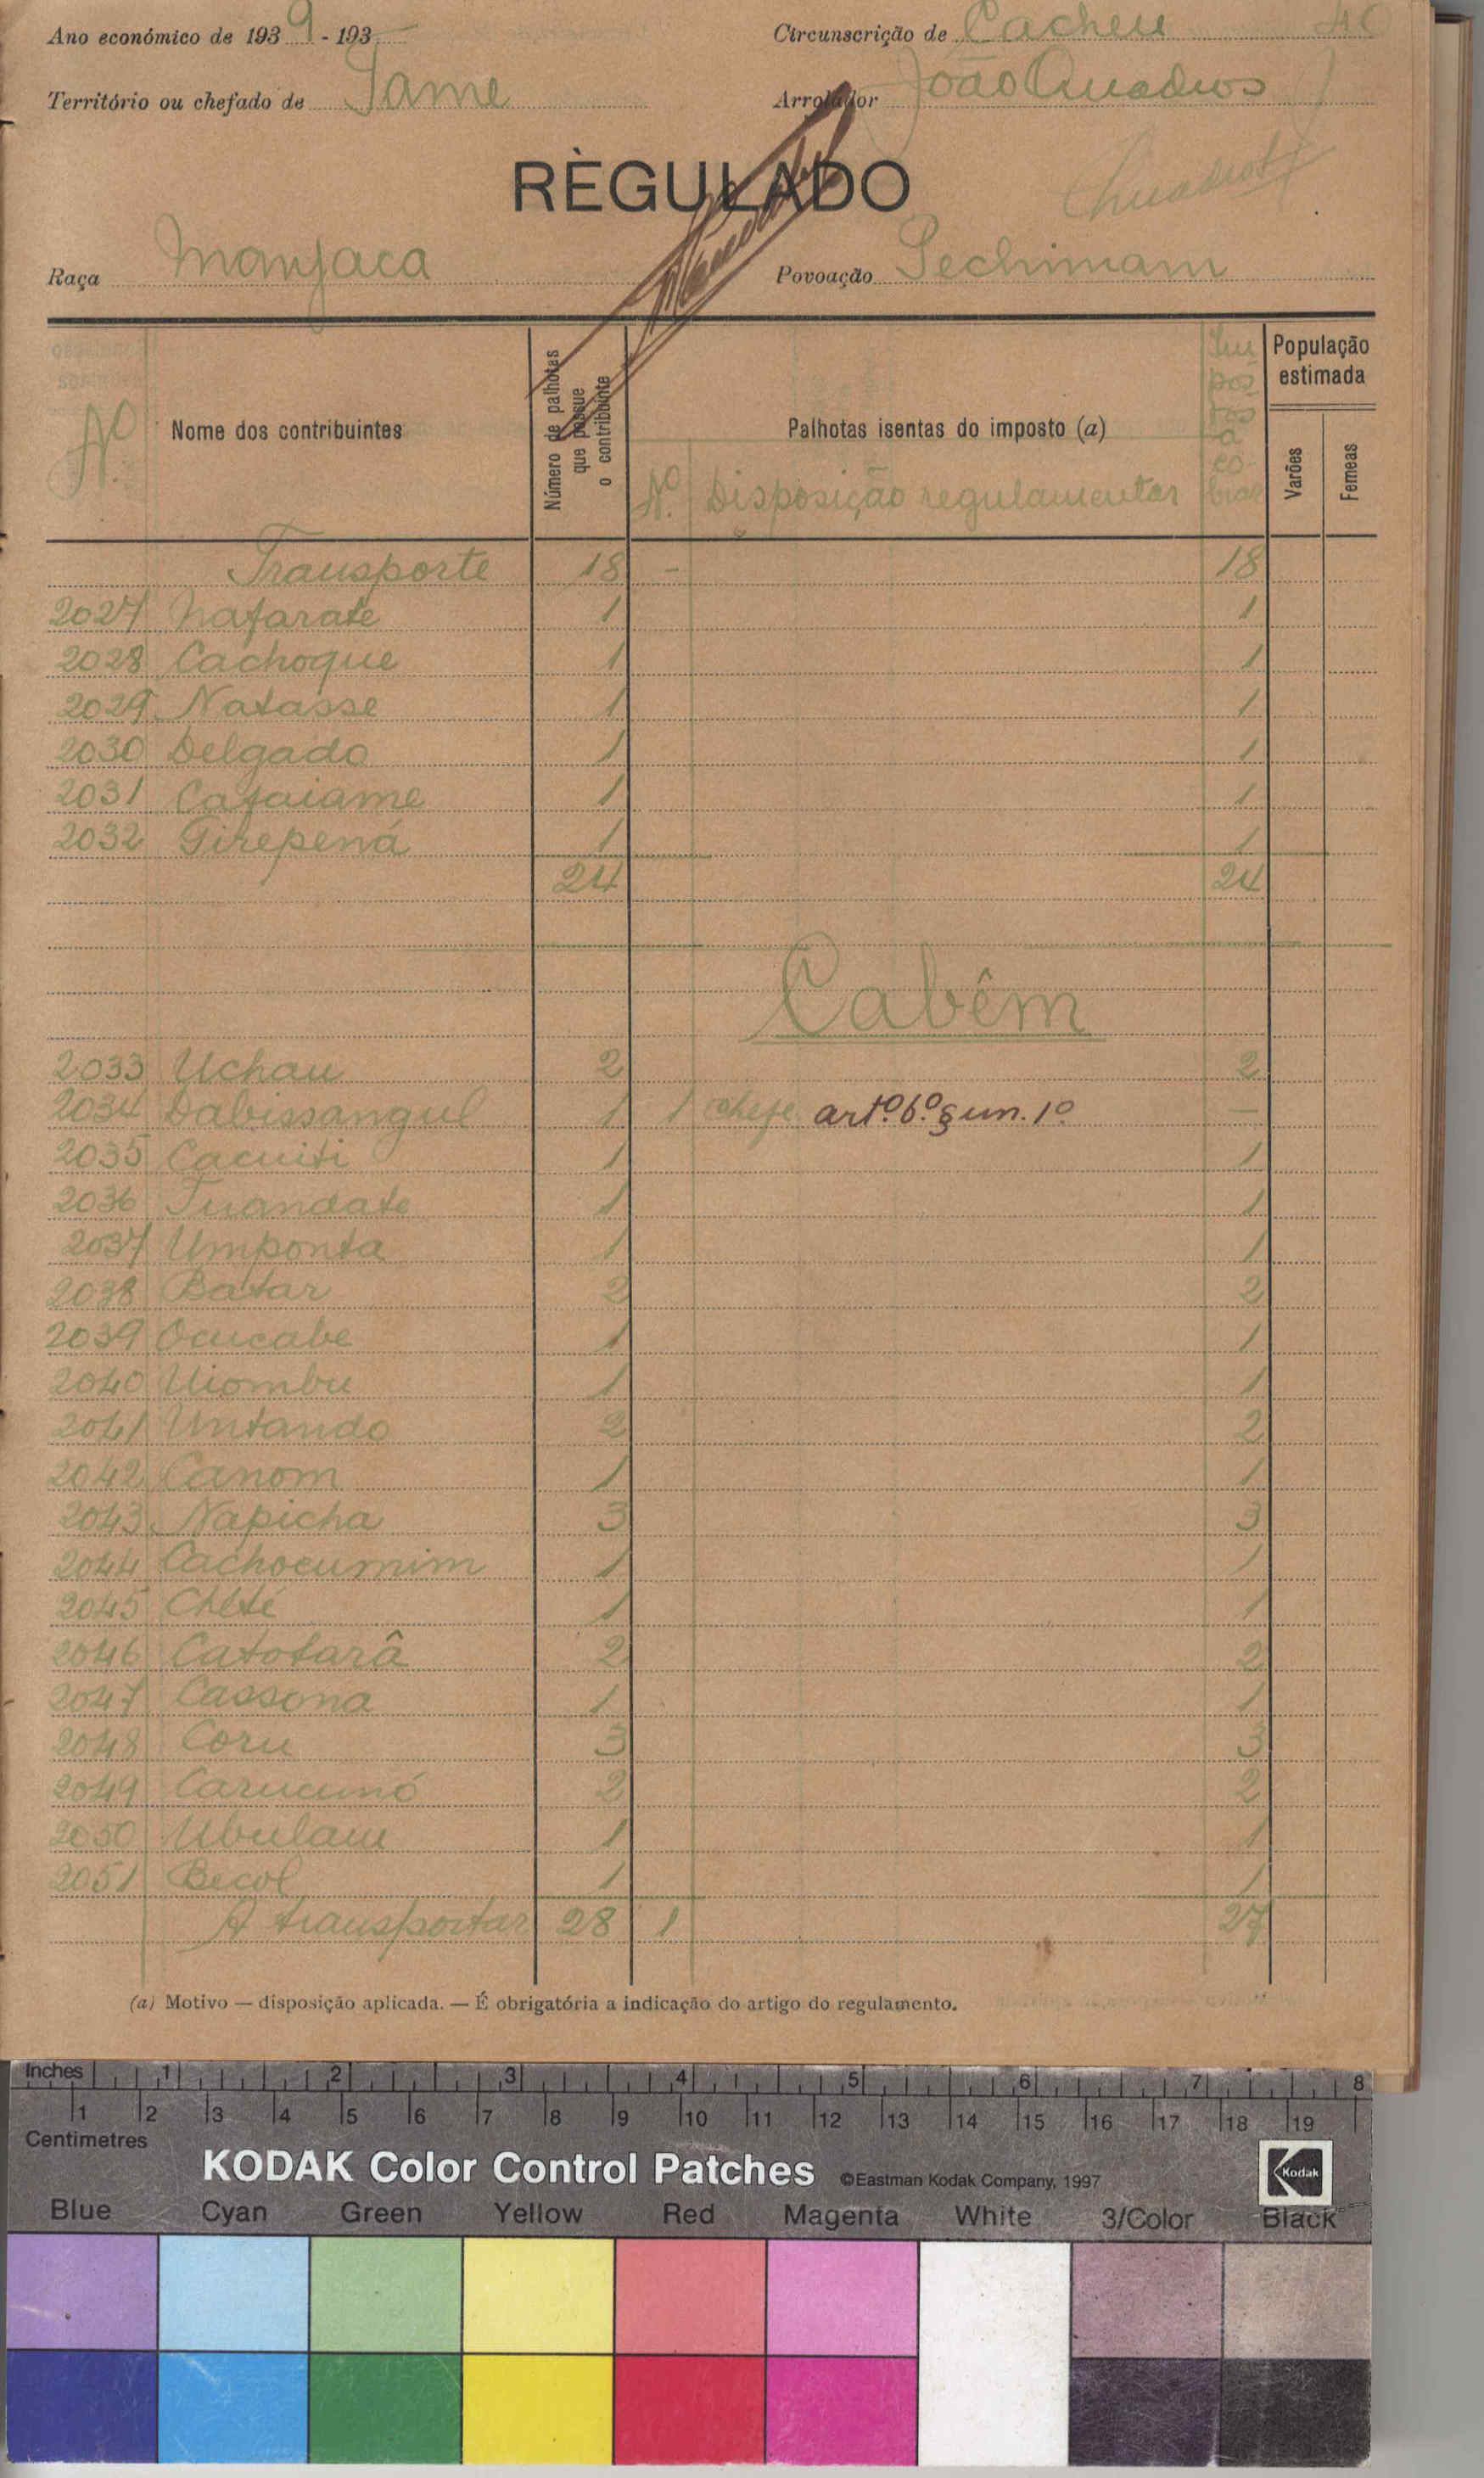 Ano económico de 1939 - 193
Circunscrição de Cacheu 40
Território ou chefado de Jame
Arrolador João Quadros
RÈGULADO
Raça Manjaca
Povoação Pechimam
Nº
Nome dos contribuintes
Número de palhotas que possue o contribuinte
Palhotas isentas do imposto (a)
Nº Disposição regulamentar
Impostos a cobrar
População estimada
Varões
Femeas
Transporte 18 - 18
2027 Nafarate 1 1
2028 Cachoque 1 1
2029 Natasse 1 1
2030 Delgado 1 1
2031 Cafaiame 1 1
2032 Girepená 1 1
24 24
Cabêm
2033 Uchau 2 2
2034 Dabissangul 1 1 chefe artº 6º § un. 1º —
2035 Cacuiti 1 1
2036 Tuandate 1 1
2037 Umponta 1 1
2038 Batar 2 2
2039 Ocucabe 1 1
2040 Uiombu 1 1
2041 Untando 2 2
2042 Canom 1 1
2043 Napicha 3 3
2044 Cachocumim 1 1
2045 Chété 1 1
2046 Catotarâ 2 2
2047 Cassona 1 1
2048 Coru 3 3
2049 Carucunó 2 2
2050 Ubulam 1 1
2051 Becol 1 1
A transportar 28 1 27
(a) Motivo — disposição aplicada. — É obrigatória a indicação do artigo do regulamento.
Inches 1 2 3 4 5 6 7 8
1 2 3 4 5 6 7 8 9 10 11 12 13 14 15 16 17 18 19
Centimetres
KODAK Color Control Patches ©Eastman Kodak Company, 1997 Kodak
Blue Cyan Green Yellow Red Magenta White 3/Color Black